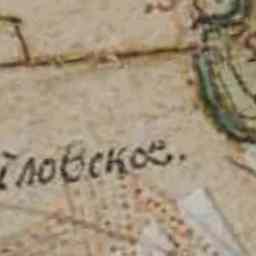 іловское.